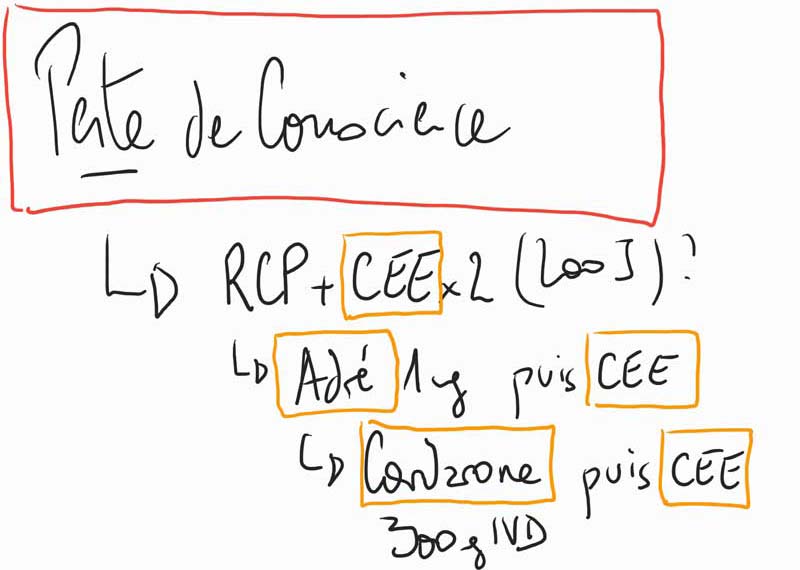 Perte de Conscience
RCP + CEE x 2 (200J) ?
Adré 1mg puis CEE
Cordarone puis CEE
300g IVD